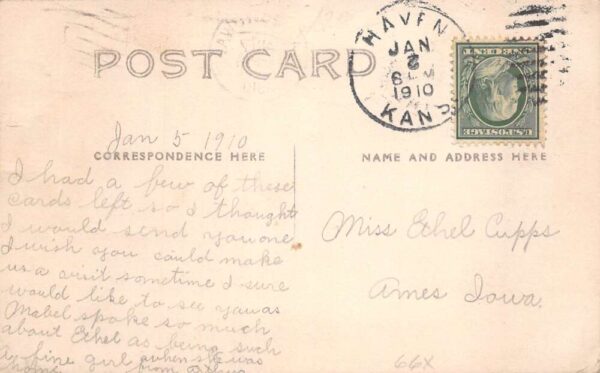 POST CARD
HAVEN
JAN
6
8 AM
1910
KANS
U.S.POSTAGE
Jan 5 1910
CORRESPONDENCE HERE
I had a few of these
cards left so I thought
I would send you one
I wish you could make
us a visit sometime I sure
would like to see you as
Mabel spoke so much
about Ethel as being such
a fine girl when she was
home from
NAME AND ADDRESS HERE
Miss Ethel Cupps
Ames Iowa.
66X